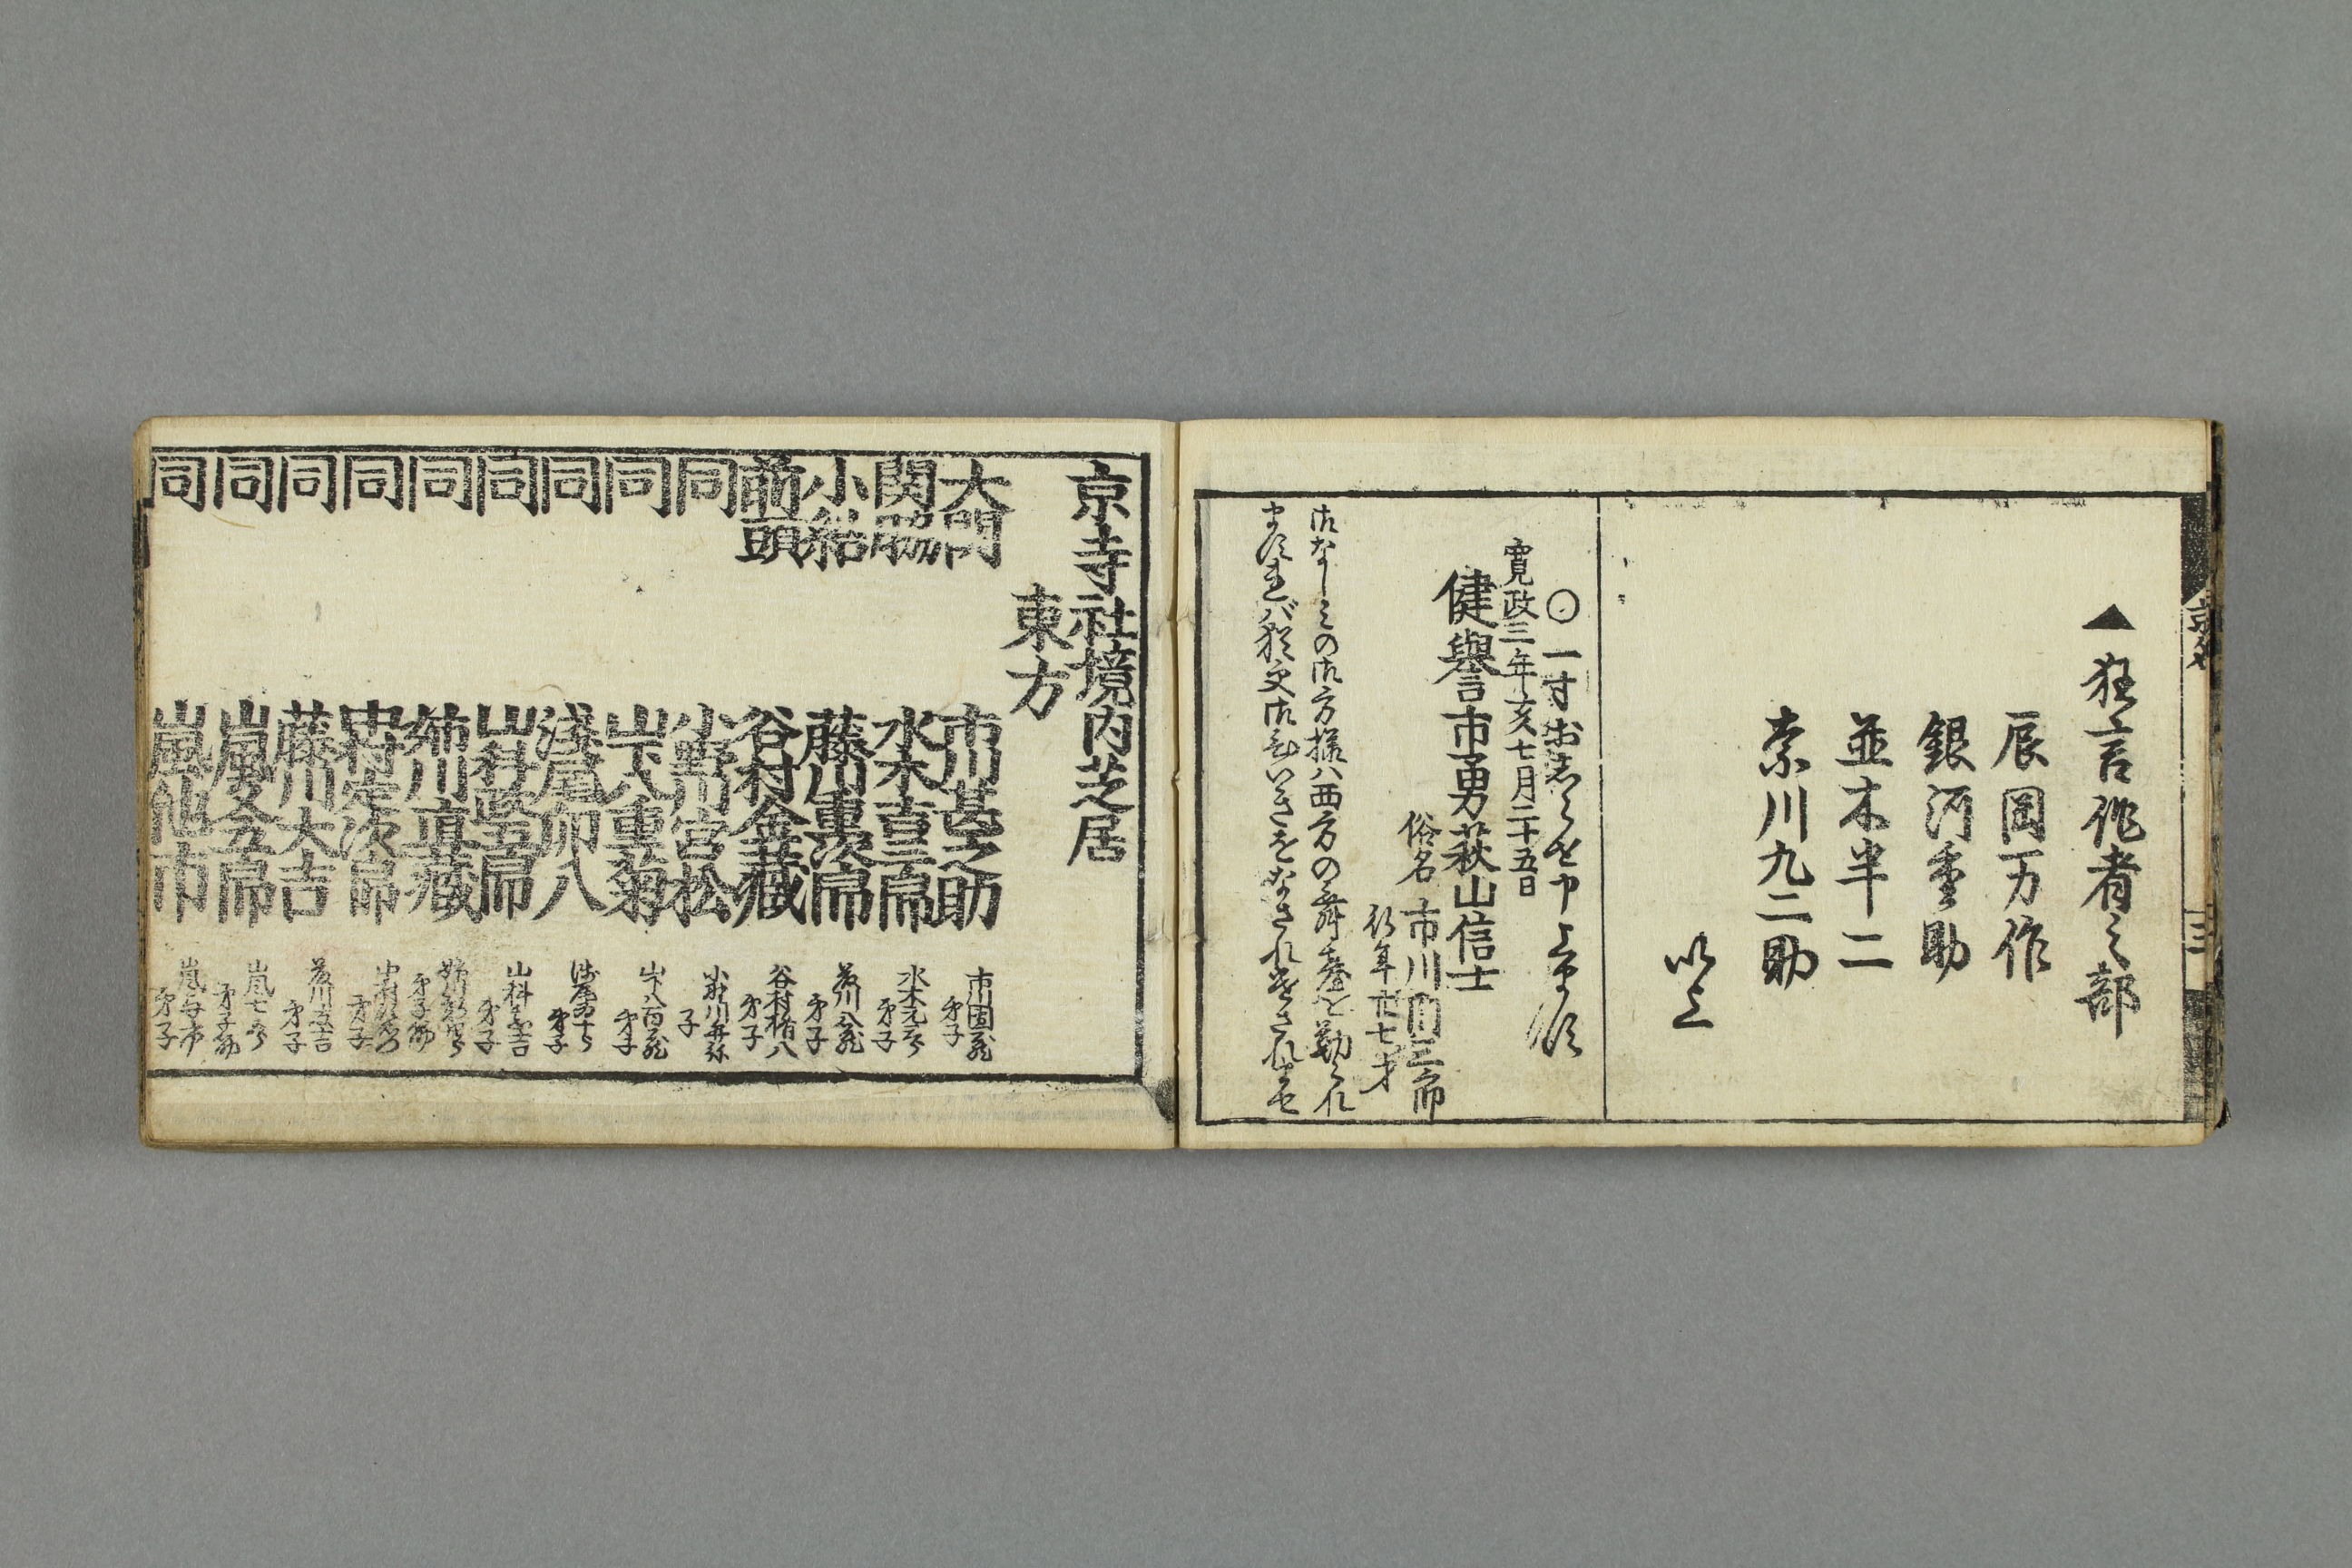 ▲狂言作者之部
辰岡万作
銀河重助
並木半二
奈川九二助
以上
〇一寸お志らせ申上候
寛政三年亥七月二十五日
健譽市勇萩山信士
俗名 市川團三郎
行年廿七才
御なじミの御方様ハ西方の舞臺を勤られ
京寺社境内芝居
東方
大関 市川甚之助 市川団蔵弟子
関脇 水木吉三郎 水木元弟子
小結 藤川重次郎 藤川八蔵弟子
前頭 谷村金蔵 谷村楯八弟子
同 小野川宮松 小野川弁弥子
同 山下八重菊 山下八百蔵弟子
同 浅尾卯八 浅尾弟子
同 山科芝五郎 山科甚吉弟子
同 姉川直蔵 弟子
同 中村定次郎 中村弟子
同 藤川大吉 藤川友吉弟子
同 嵐文五郎 嵐七弟子
同 嵐他市 嵐与市弟子